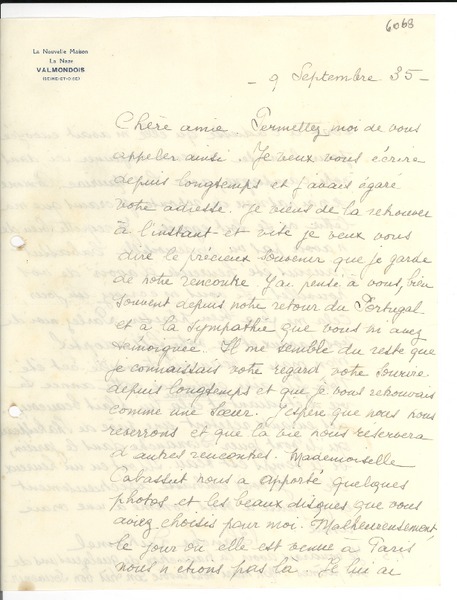 6068
La Nouvelle Maison
La Naze
VALMONDOIS
(SEINE-ET-OISE)
- 9 Septembre 35 -
Chère amie Permettez moi de vous
appeler ainsi. Je veux vous écrire
depuis longtemps et j'avais égaré
votre adresse. Je viens de la retrouver
à l'instant et vite je veux vous
dire le précieux souvenir que je garde
de notre rencontre J'ai pensé à vous, bien
souvent depuis notre retour du Portugal
et à la sympathie que vous m'avez
témoignée. Il me semble du reste que
je connaissais votre regard votre sourire
depuis longtemps et que je vous retrouvais
comme une sœur. J'espère que nous nous
reverrons et que la vie nous réservera
d'autres rencontres. Mademoiselle
Cabassut nous a apporté quelques
photos et les beaux disques que vous
aviez choisis pour moi. Malheureusement
le jour où elle est venue à Paris
nous n'étions pas là. Je lui ai